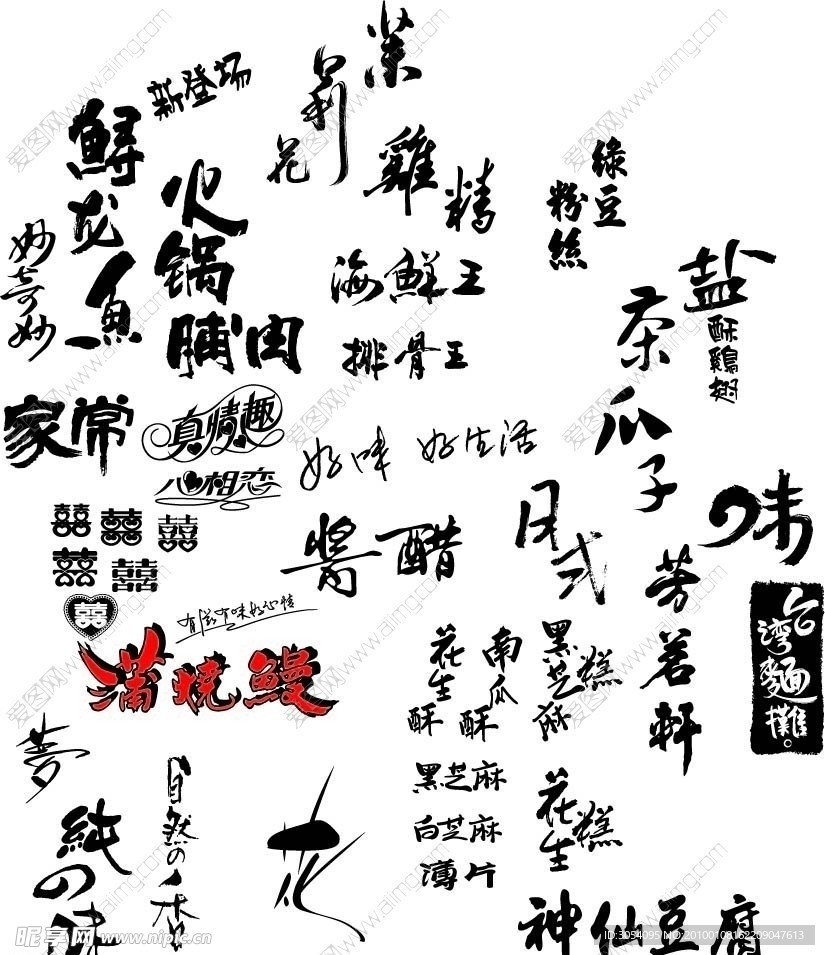 茉
莉
花
新登场
鲟龙鱼
火锅
脯肉
雞精
绿豆
粉絲
妙奇妙
海鮮王
排骨王
盐
酥鷄翅
茶瓜子
家常
真情趣
心相恋
好味 好生活
味
囍囍囍
囍囍
囍
醬醋
日式
芳茗軒
台灣麵攤。
有滋有味好心情
蒲燒鰻
花生酥
南瓜酥
黑芝麻糕
夢
自然の香
純の味
花
黑芝麻
白芝麻
薄片
花生糕
神仙豆腐
昵享网 www.nipic.cn
ID:3054095 NO:20100108162209047613
爱图网 www.aiimg.com